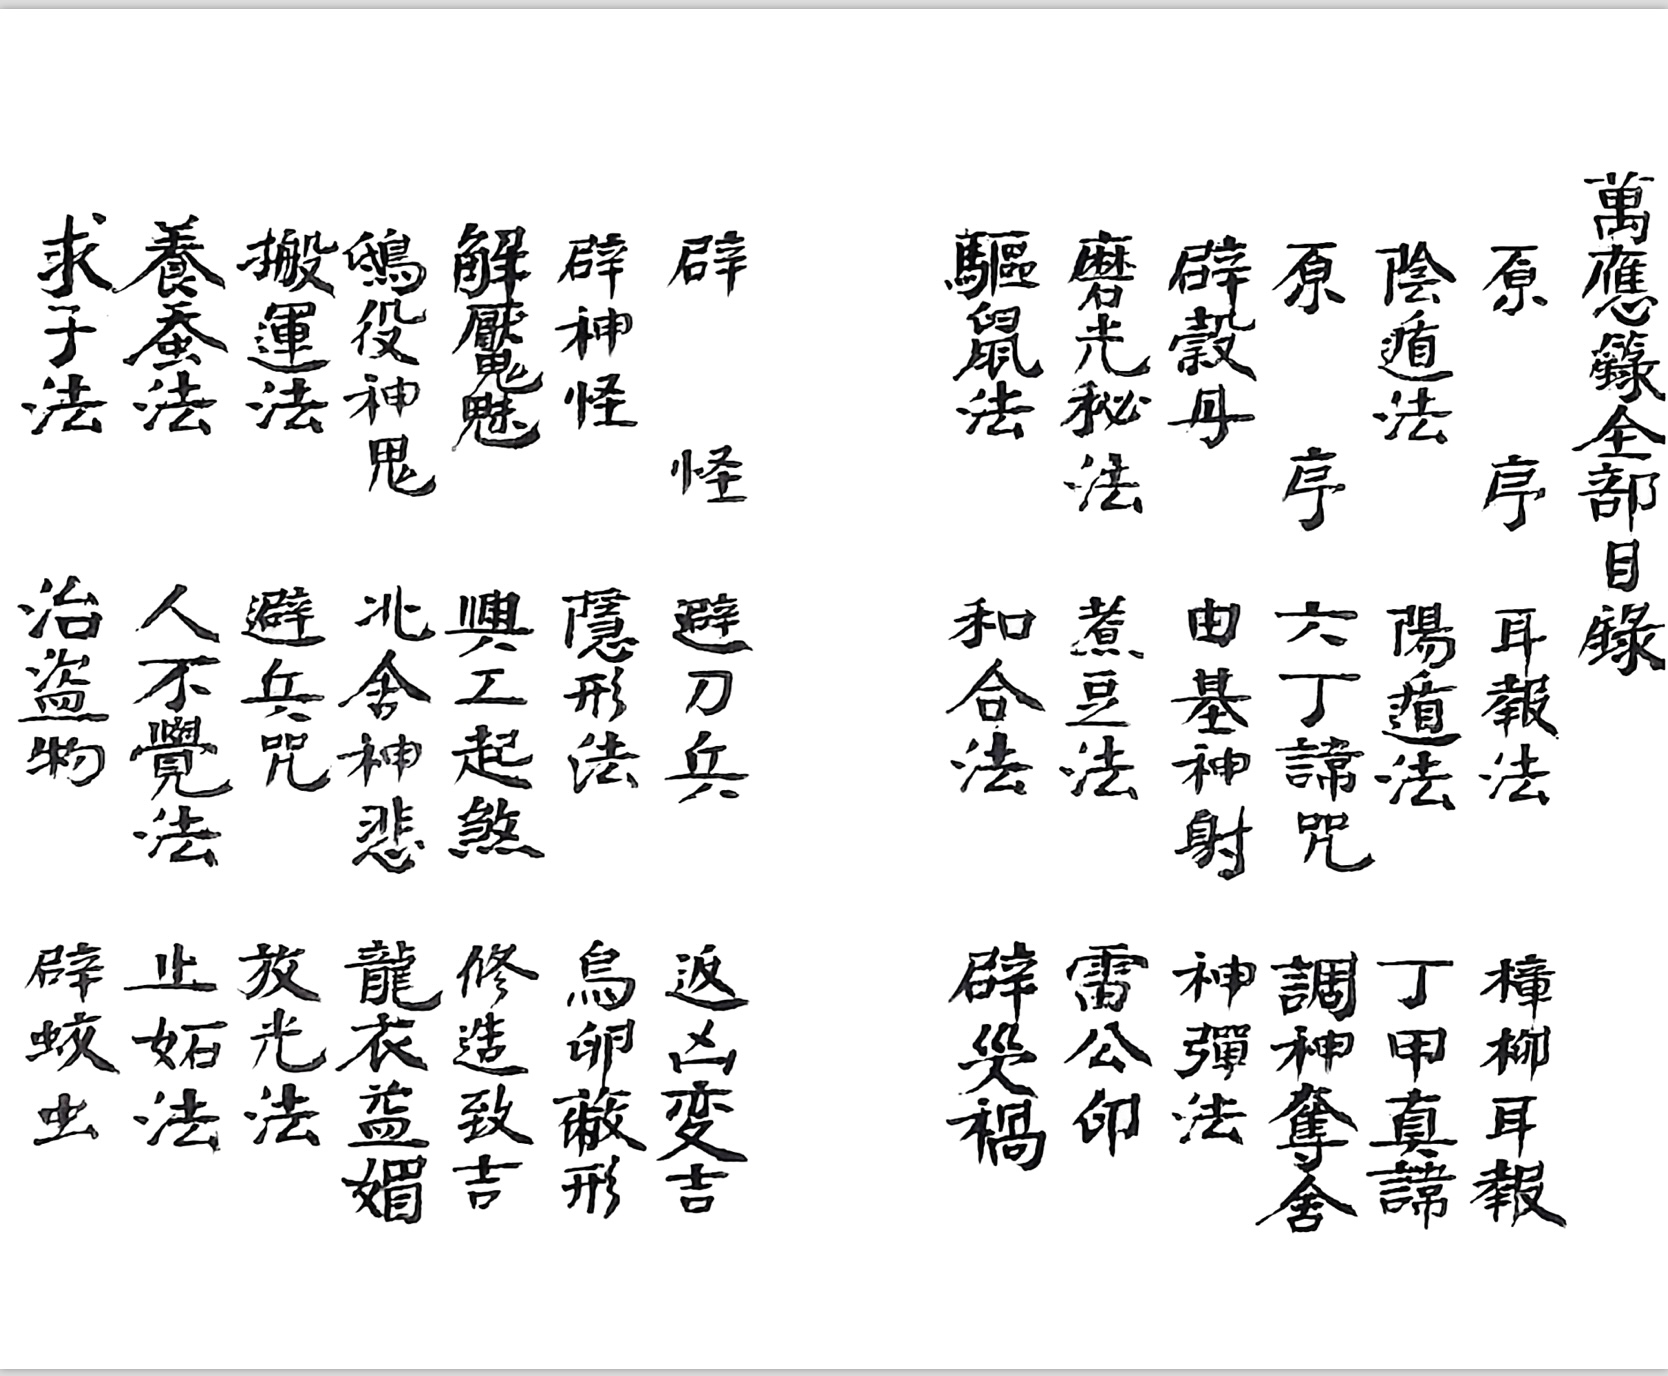 萬應籙全部目錄
原序 耳報法 樟柳耳報
陰遁法 陽遁法 丁甲真諦
原序 六丁諦咒 調神奪舍
辟穀丹 由基神射 神彈法
磨光秘法 煮豆法 雷公印
驅鼠法 和合法 辟災禍
辟怪 避刀兵 返凶变吉
辟神怪 隱形法 鳥卵蔽形
解魘魅 興工起煞 修造致吉
鴟役神鬼 北舍神悲 龍衣益媚
搬運法 避兵咒 放光法
養蚕法 人不覺法 止妬法
求子法 治盜物 辟蛟虫